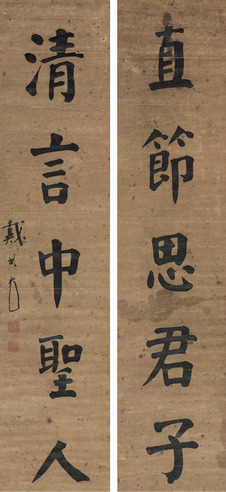 直節思君子
清言中聖人